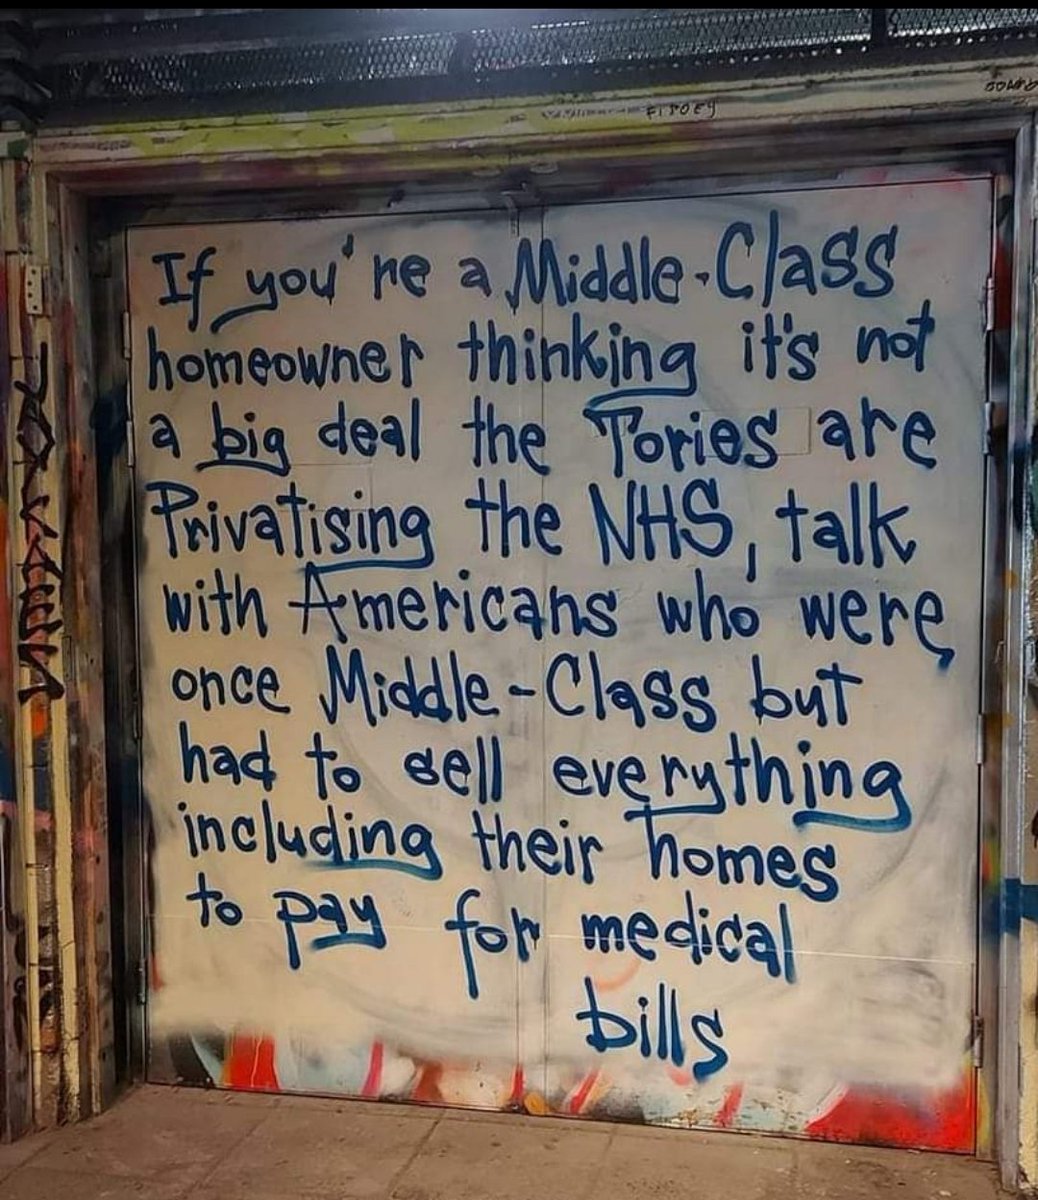 FIPOEY
If you're a Middle-Class
homeowner thinking it's not
a big deal the Tories are
Privatising the NHS, talk
with Americans who were
once Middle-Class but
had to sell everything
including their homes
to pay for medical
bills